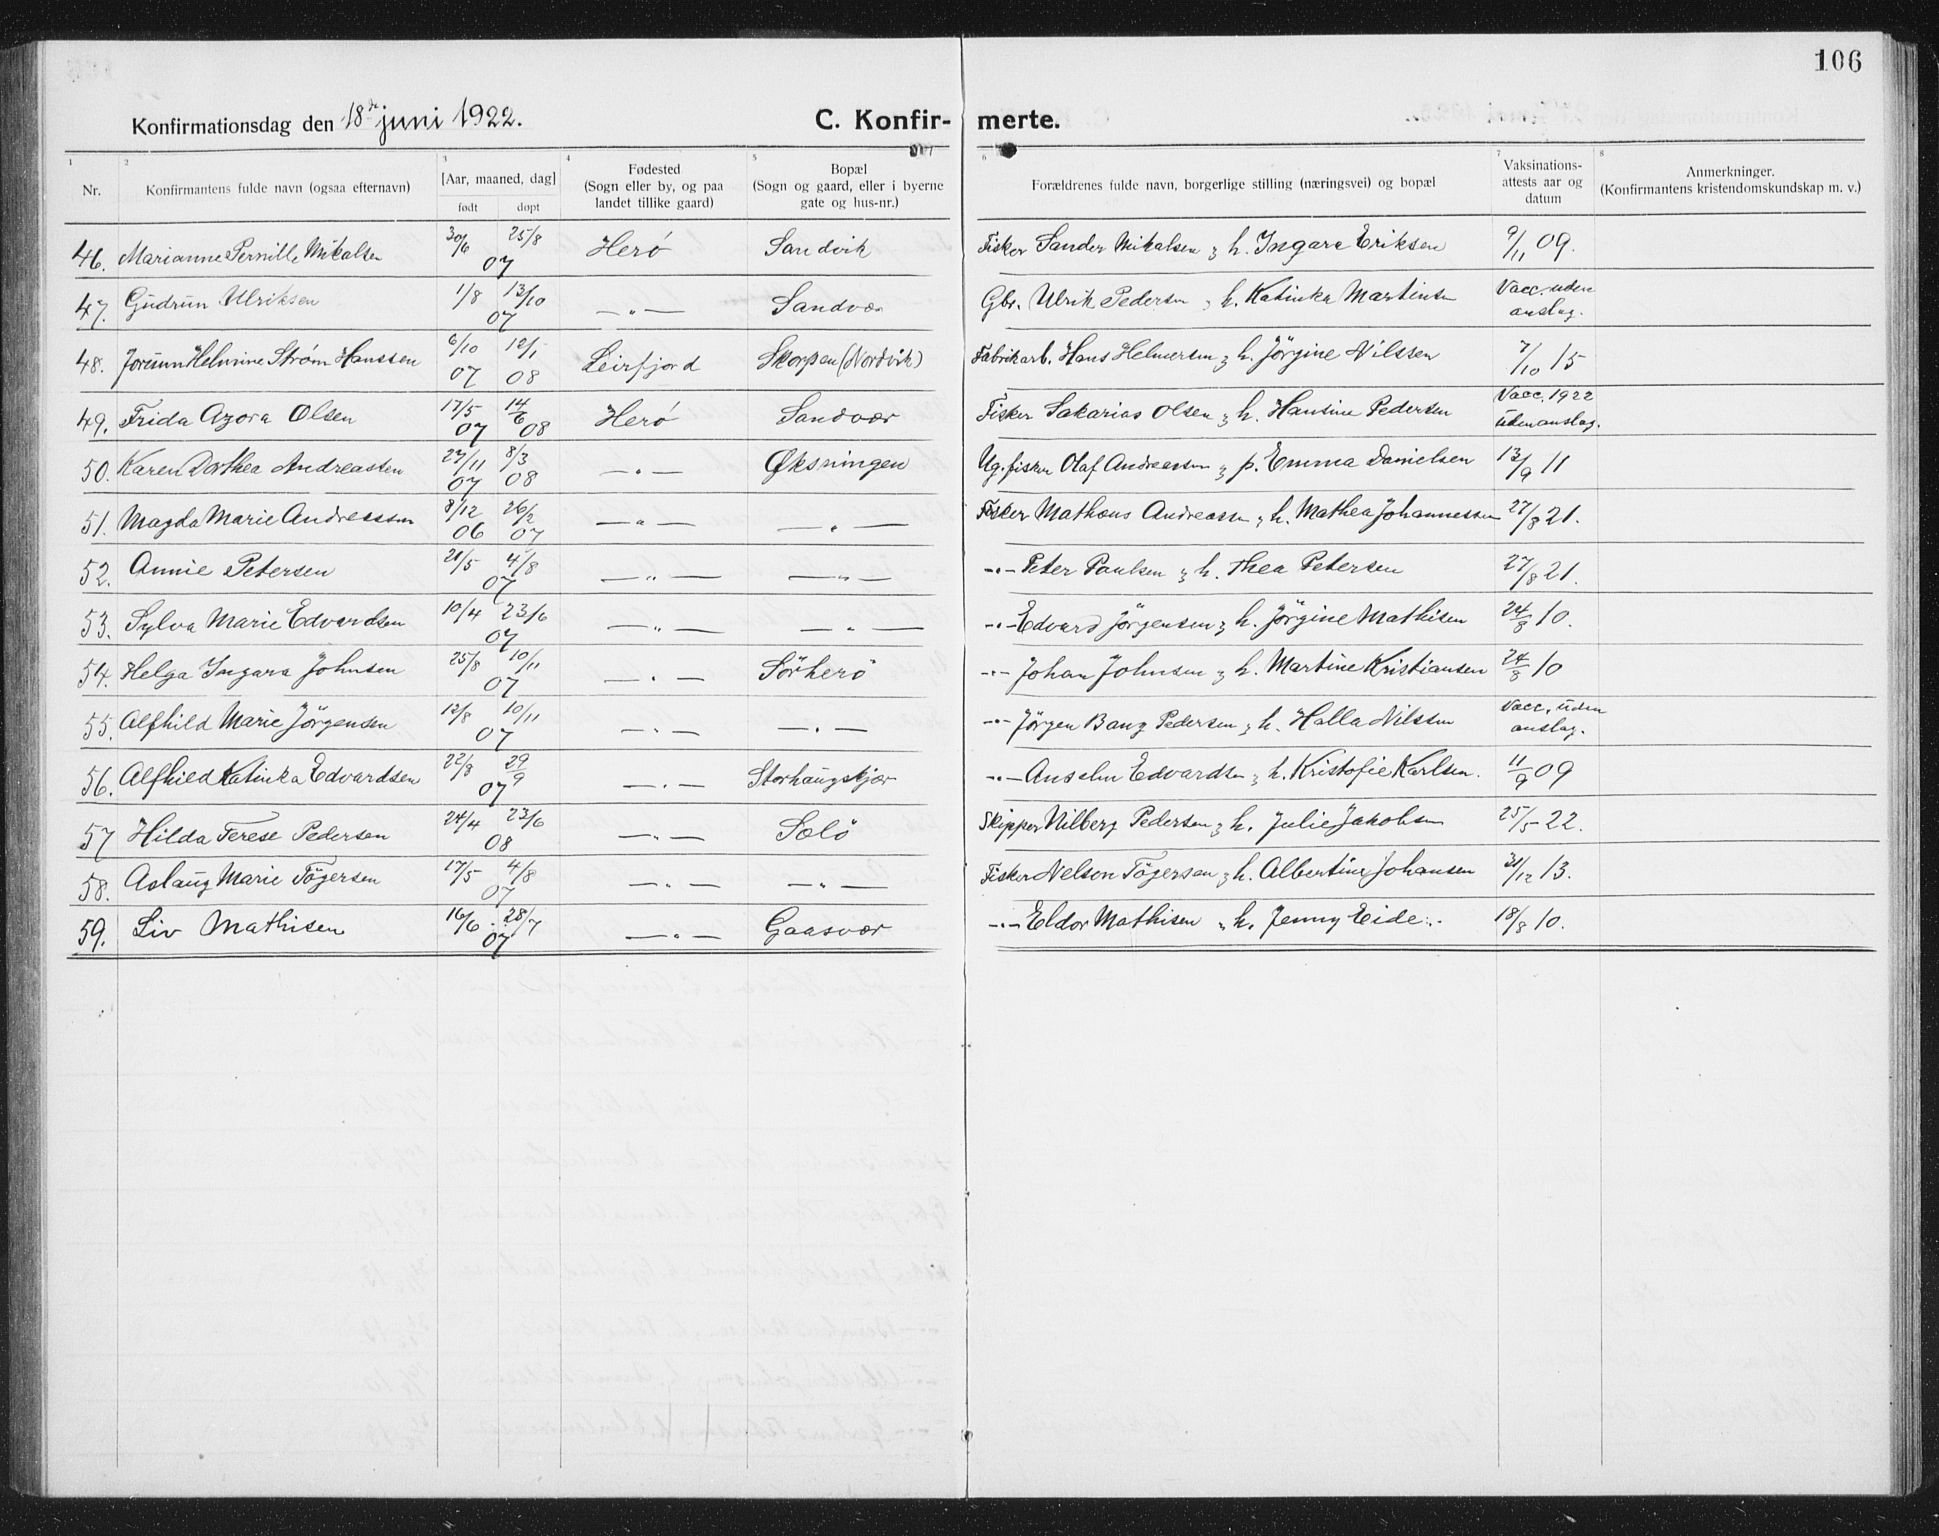 106
Konfirmationsdag den 18de juni 1922. C. Konfirmerte.
1 2 3 4 5 6 7 8
Nr. Konfirmantens fulde navn (ogsaa efternavn) [Aar, maaned, dag] født døpt Fødested (Sogn eller by, og paa landet tillike gaard) Bopæl (Sogn og gaard, eller i byerne gate og hus-nr.) Forældrenes fulde navn, borgerlige stilling (næringsvei) og bopæl Vaksinations-attests aar og datum Anmerkninger. (Konfirmantens kristendomskundskap m. v.)
46. Marianne Pernille Mikalsen 30/6 25/8 07 Herö Sandvik Fisker Sander Mikalsen & h. Ingare Eriksen 9/11 09.
47. Gudrun Ulriksen 1/8 13/10 07 —„— Sandvær Gbr. Ulrik Pedersen & h. Katinka Martinsen Vacc. uden anslag.
48. Jorunn Helmine Strøm Hanssen 6/10 07 12/1 08 Leirfjord Skorpen (Nordvik) Fabrikarb. Hans Helmersen & h. Jörgine Nilssen 7/10 15
49. Frida Azora Olsen 17/5 07 14/6 08 Herö Sandvær Fisker Sakarias Olsen & h. Hansine Pedersen Vacc. 1922 uden anslag.
50. Karen Dorthea Andreassen 27/11 07 8/3 08 —„— Øksningen Ug. fisker Olaf Andreassen & p. Emma Danielsen 13/9 11
51. Magda Marie Andreassen 8/12 06 26/2 07 —„— —„— Fisker Mathæus Andreassen & h. Mathea Johannessen 27/8 21.
52. Annie Petersen 21/5 4/8 07 —„— —„— -„- Peter Paulsen & h. Thea Petersen 27/8 21.
53. Sylva Marie Edvardsen 10/4 23/6 07 —„— —„— -„- Edvard Jörgensen & h. Jörgine Mathisen 24/8 10.
54. Helga Ingara Johnsen 25/8 10/11 07 —„— Sörherö -„- Johan Johnsen & h. Martine Kristiansen 24/8 10
55. Alfhild Marie Jörgensen 12/8 10/11 07 —„— —„— -„- Jörgen Bang Pedersen & h. Halla Nilssen Vacc. uden anslag.
56. Alfhild Katinka Edvardsen 22/8 29/9 07 —„— Storhaugskjær -„- Anselm Edvardsen & h. Kristofie Karlsen. 11/9 09
57 Hilda Terese Pedersen 24/4 23/6 08 —„— Sölö Skipper Nilberg Pedersen & h. Julie Jakobsen 25/5 22.
58. Aslaug Marie Tögersen 17/5 4/8 07 —„— —„— Fisker Nelson Tögersen & h. Albertine Johansen 31/12 13.
59. Liv Mathisen 16/6 28/7 07 —„— Gaasvær -„- Eldor Mathisen & h. Jenny Eide. 18/8 10.